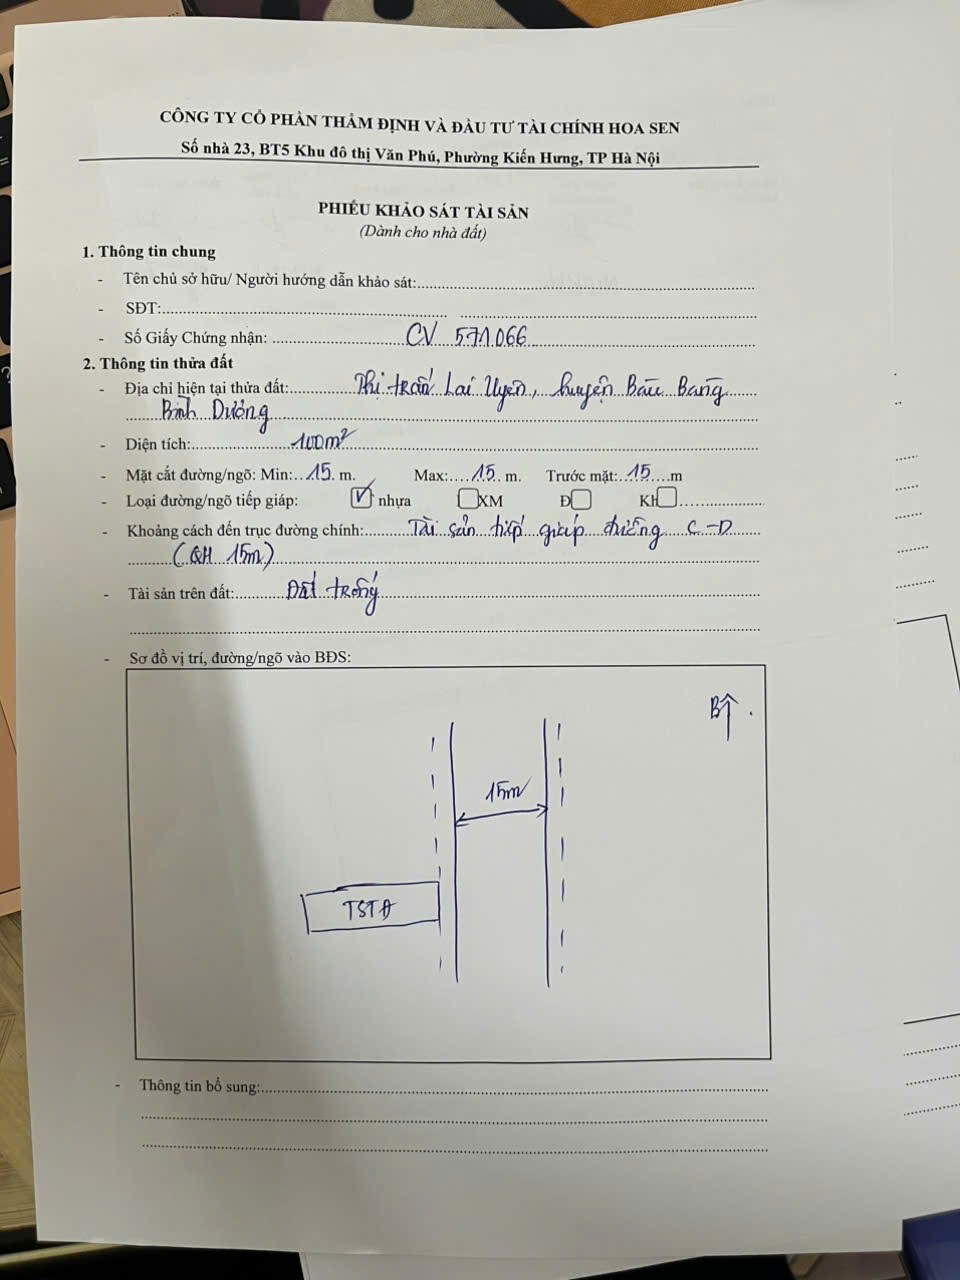 CÔNG TY CỔ PHẦN THẨM ĐỊNH VÀ ĐẦU TƯ TÀI CHÍNH HOA SEN
Số nhà 23, BT5 Khu đô thị Văn Phú, Phường Kiến Hưng, TP Hà Nội
PHIẾU KHẢO SÁT TÀI SẢN
(Dành cho nhà đất)
1. Thông tin chung
- Tên chủ sở hữu/ Người hướng dẫn khảo sát:
- SĐT:
- Số Giấy Chứng nhận: CV 571066
2. Thông tin thửa đất
- Địa chỉ hiện tại thửa đất: Thị trấn Lai Uyên, huyện Bàu Bàng
Bình Dương
- Diện tích: 100m²
- Mặt cắt đường/ngõ: Min: 15 m. Max: 15 m. Trước mặt: 15 m
- Loại đường/ngõ tiếp giáp: ☑ nhựa ☐ XM Đ☐ Kh☐
- Khoảng cách đến trục đường chính: Tài sản tiếp giáp đường C-D
(QH 15m)
- Tài sản trên đất: Đất trống
- Sơ đồ vị trí, đường/ngõ vào BĐS:
B
15m
TSTĐ
- Thông tin bổ sung: